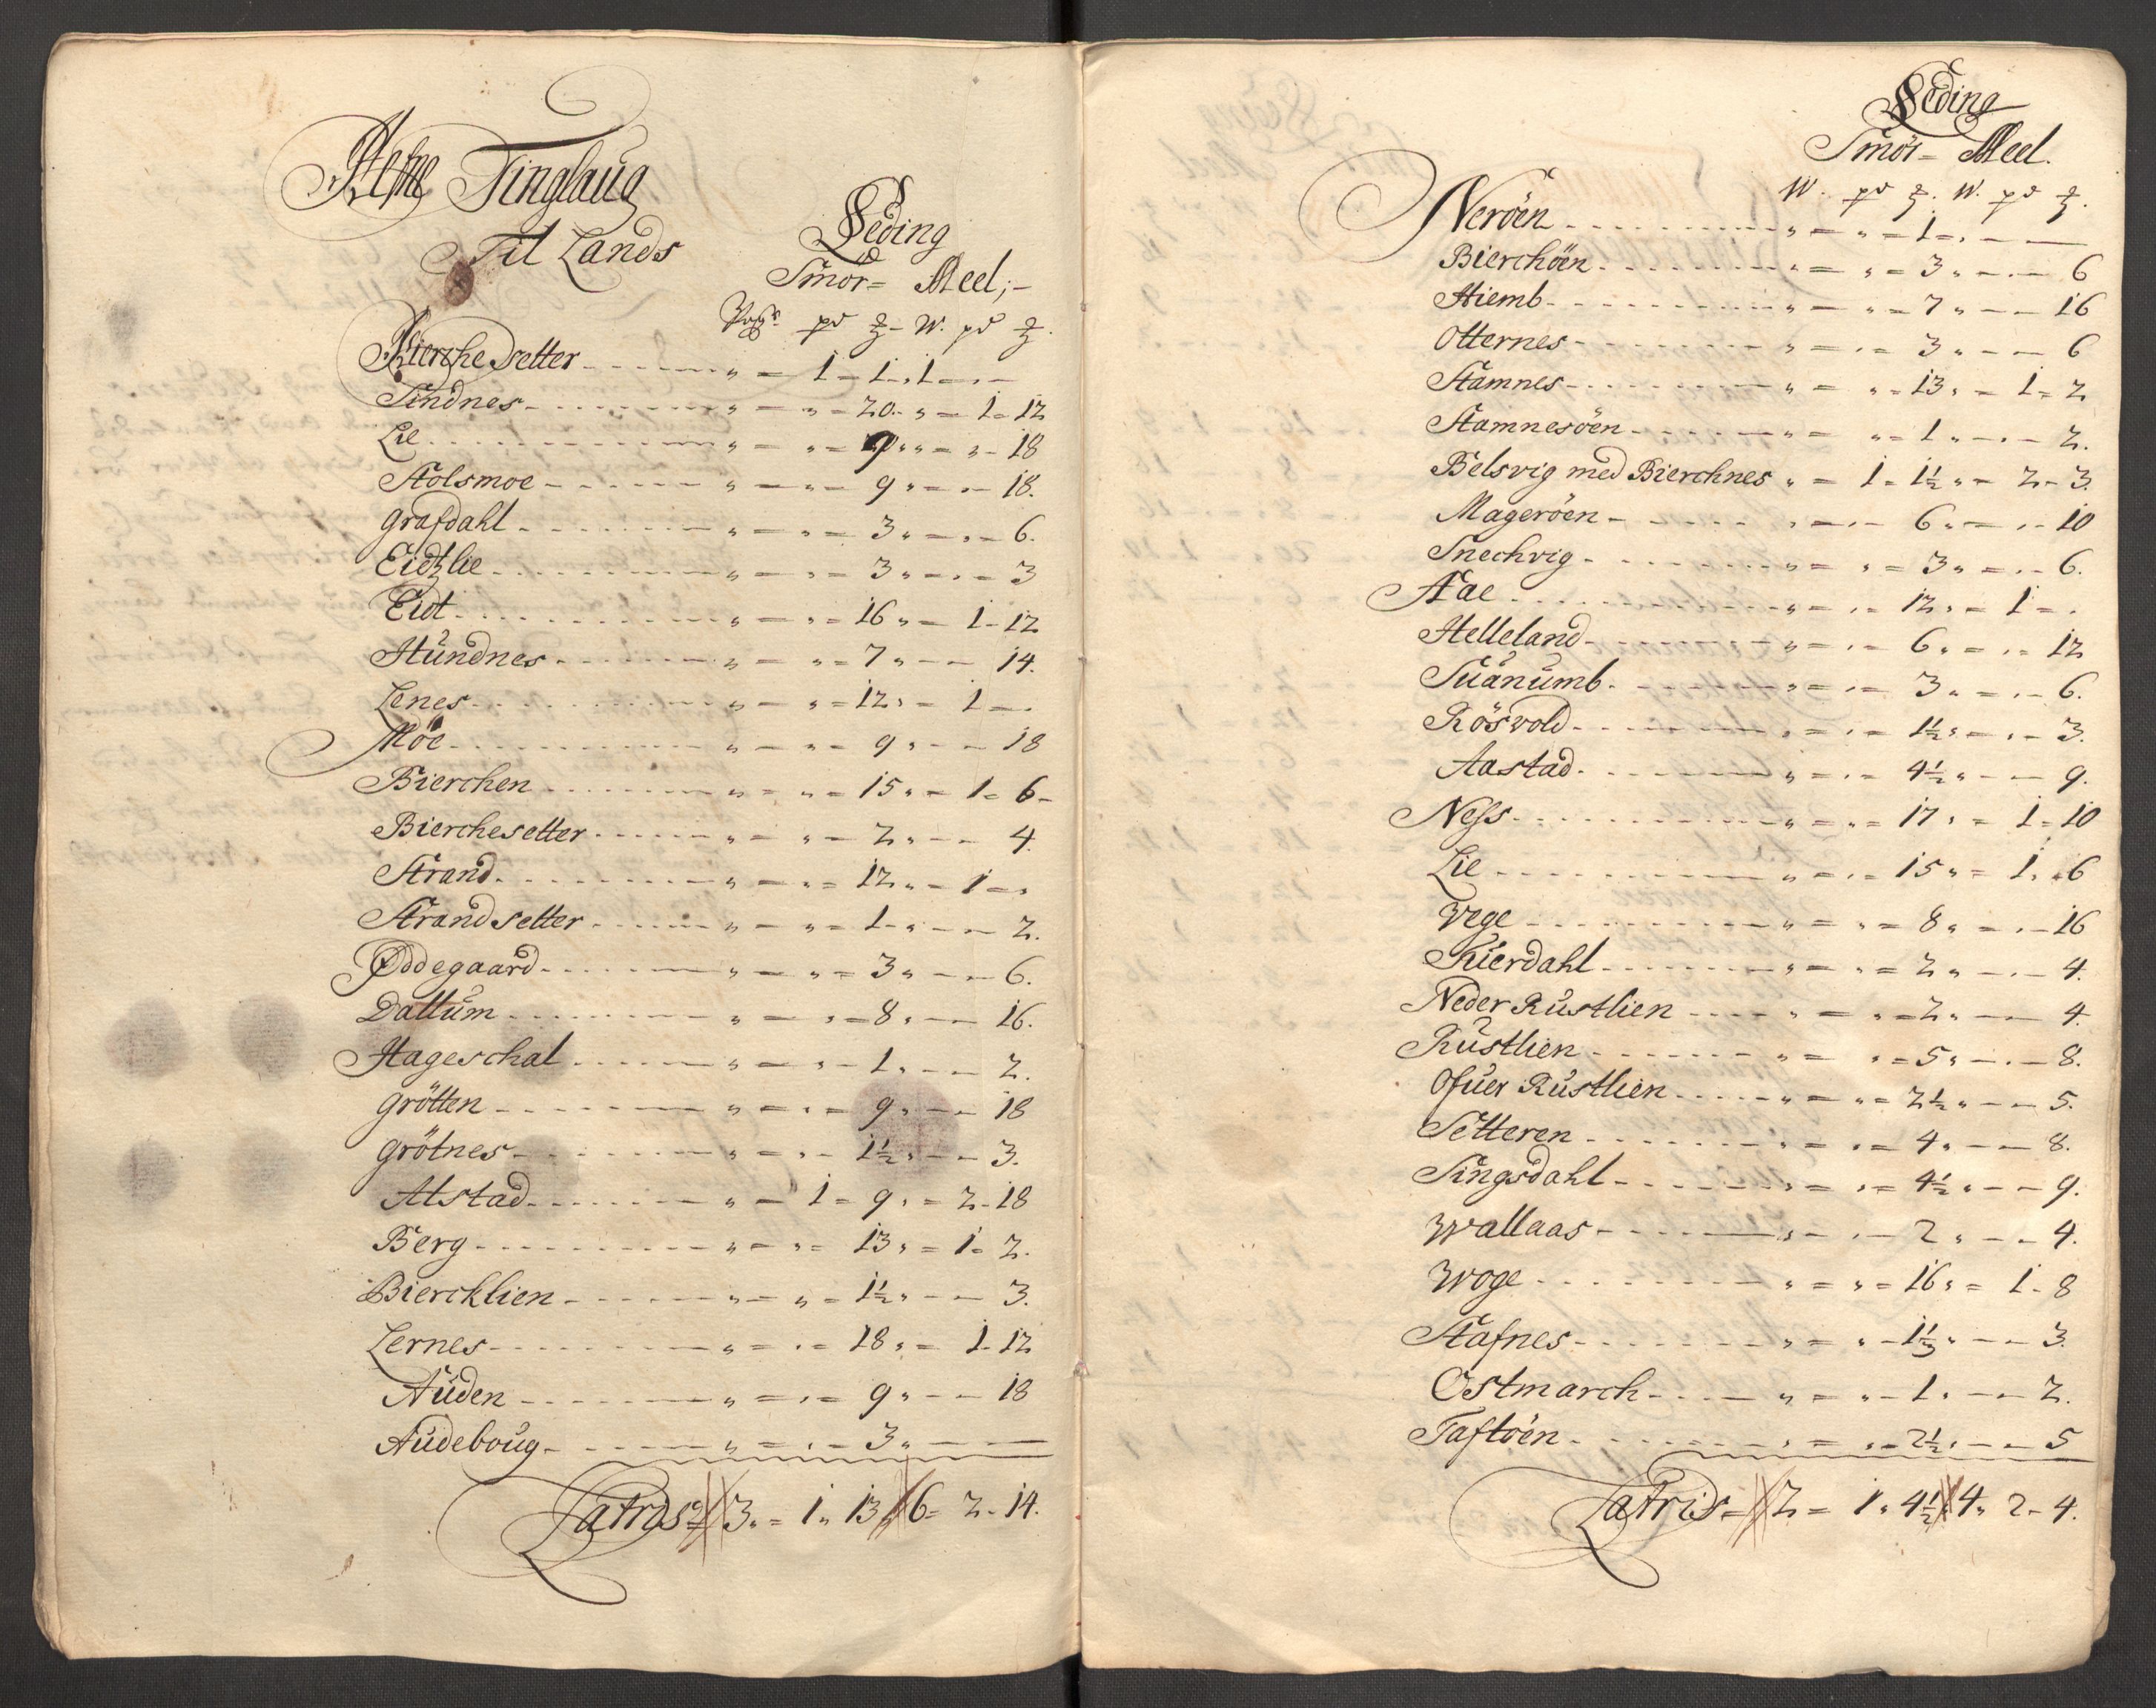 Hefne Tinglaug
Til Lands
Leding
Smör= Meel;-
pd ℔ - W. pd ℔.
Bierchesetter - - - " = 1 - 1 - " 1 - " -
Sindnes - - - " = " = 20 - " = 1 - 12
Lie - - - " = " = 9 " " = " - 18
Stolsmoe - - - " = " = 9 " = " - 18.
Grafdahl - - - " = " = 3 " = " - 6.
Eidtzlie - - - " = " = 3 " = " = 3
Eidt - - - " = " = 16 " = 1 - 12
Hundnes - - - " = " = 7 " - - 14.
Lenes - - - " = " = 12 " = 1 - "
Möe - - - " = " = 9 " - - 18
Bierchen - - - " = " = 15 " = 1 - 6 -
Bierchesetter - - - " = " = 2 " - - 4
Strand - - - " = " = 12 " = 1 = "
Strandsetter - - - " = " = 1 - " - - 2.
Oddegaard - - - " = " = 3 " - - 6.
Dallum - - - " = " = 8 " - - 16.
Hageschal - - - " = " - 1 " - - 2.
Grötten - - - " = " = 9 " - - 18
Grötnes - - - " = " - 1½ " - - 3.
Alstad - - - " = 1 = 9 " = 2 - 18
Berg - - - " = " = 13 " = 1 - 2.
Biercklien - - - " = " = 1½ " - - 3.
Lernes - - - " = " = 18 " = 1 - 12
Auden - - - " = " = 9 " - - 18
Audeboug - - - " = " - 3 " - -
3 " = 1 " 13 " 6 = 2 - 14.
Leding
Smör= Meel.
W. pd ℔. W. pd ℔.
Neröen - - - " = " = 1 = " - -
Bierchöen - - - " = " = 3 " - " - 6
Hiemb - - - " = " = 7 " - - 16
Otternes - - - " = " = 3 " - - 6
Stamnes - - - " = " = 13 " = 1 = 2
Stamnesöen - - - " = " = 1 " - " - 2.
Belsvig med Bierchnes " = 1 - 1½ " = 2 - 3.
Mageröen - - - " = " - 6 " = " - 10
Snechvig - - - " = " = 3 " = " - 6.
Aae - - - " = " = 12 " = 1 = "
Helleland - - - " = " = 6 " = " = 12
Suanumb - - - " = " = 3 " = " - 6.
Rösvold - - - " = " = 1½ " = " - 3.
Aastad - - - " = " = 4½ " - - 9.
Ness - - - " = " = 17 " = 1 = 10
Lie - - - " = " = 15 " = 1 " " 6
Vege - - - " = " = 8 " = " - 16
Kierdahl - - - " = " = 2 " - " - 4.
Neder Rustlien - - - " = " = 2 " - - 4.
Rustlien - - - " = " = 5 " - " - 8.
Ofuer Rustlien - - - " = " = 2½ " - - 5.
Setteren - - - " = " = 4 " - - 8.
Singsdahl - - - " = " = 4½ " - - 9.
Wallaas - - - " - " - 2 " - - 4.
Woge - - - " = " = 16 " = 1 - 8
Stafnes - - - " = " - 1½ " - - 3.
Ostmarch - - - " = " - 1 " - - 2.
Taftöen - - - " = " - 2½ " - - 5
Latris = 2 = 1 " 4½ 4 " 2 - 4.